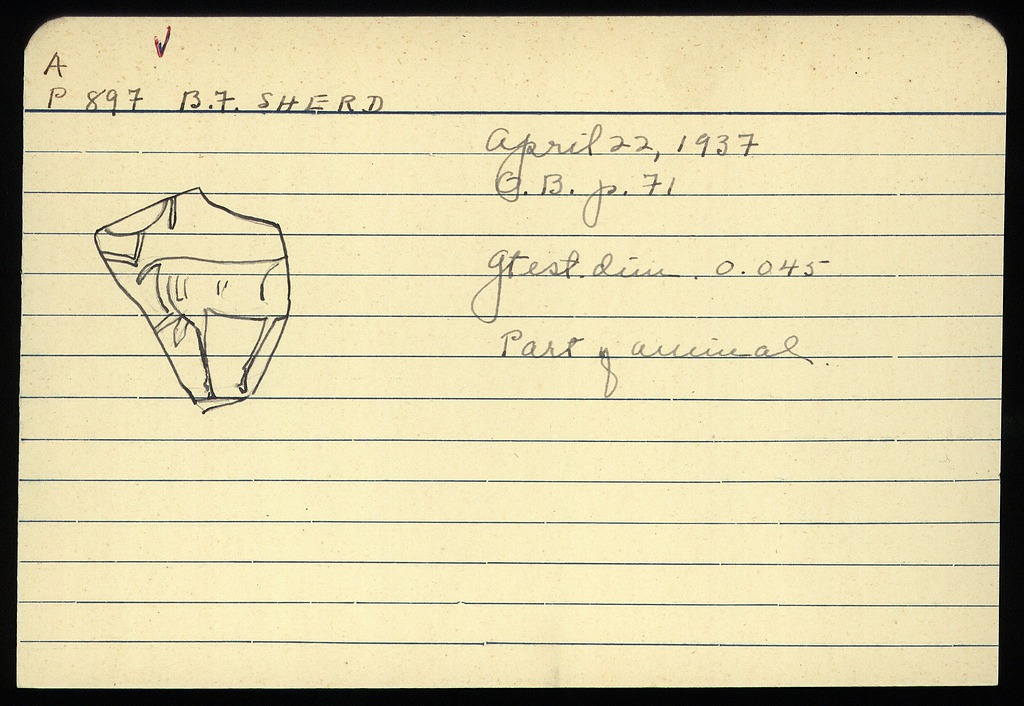 A
P 897 B.F. SHERD
April 22, 1937
O.B. p. 71
Gtest. dim. 0.045
Part of animal